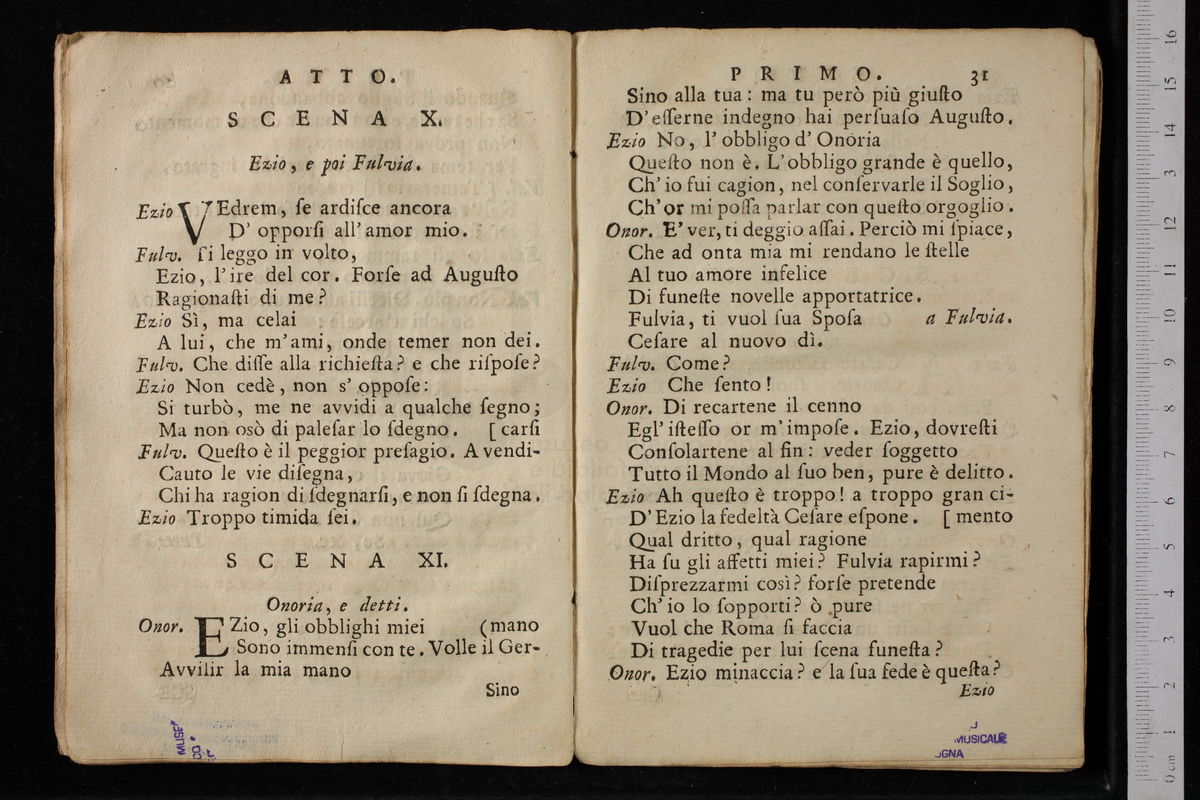 ATTO.
SCENA X.
Ezio, e poi Fulvia.
Ezio VEdrem, ſe ardiſce ancora
D' opporſi all' amor mio.
Fulv. Ti leggo in volto,
Ezio, l' ire del cor. Forſe ad Auguſto
Ragionaſti di me?
Ezio Sì, ma celai
A lui, che m' ami, onde temer non dei.
Fulv. Che diſſe alla richieſta? e che riſpoſe?
Ezio Non cedè, non s' oppoſe:
Si turbò, me ne avvidi a qualche ſegno;
Ma non osò di paleſar lo ſdegno. [carſi
Fulv. Queſto è il peggior preſagio. A vendi-
Cauto le vie diſegna,
Chi ha ragion di ſdegnarſi, e non ſi ſdegna.
Ezio Troppo timida ſei.
SCENA XI.
Onoria, e detti.
Onor. EZio, gli obblighi miei (mano
Sono immenſi con te. Volle il Ger-
Avvilir la mia mano
Sino
PRIMO. 31
Sino alla tua: ma tu però più giuſto
D' eſſerne indegno hai perſuaſo Auguſto.
Ezio No, l' obbligo d' Onoria
Queſto non è. L' obbligo grande è quello,
Ch' io fui cagion, nel conſervarle il Soglio,
Ch' or mi poſſa parlar con queſto orgoglio.
Onor. E' ver, ti deggio aſſai. Perciò mi ſpiace,
Che ad onta mia mi rendano le ſtelle
Al tuo amore infelice
Di funeſte novelle apportatrice.
Fulvia, ti vuol ſua Spoſa a Fulvia.
Ceſare al nuovo dì.
Fulv. Come?
Ezio Che ſento!
Onor. Di recartene il cenno
Egl' iſteſſo or m' impoſe. Ezio, dovreſti
Conſolartene al fin: veder ſoggetto
Tutto il Mondo al ſuo ben, pure è delitto.
Ezio Ah queſto è troppo! a troppo gran ci-
D' Ezio la fedeltà Ceſare eſpone. [mento
Qual dritto, qual ragione
Ha ſu gli affetti miei? Fulvia rapirmi?
Diſprezzarmi così? forſe pretende
Ch' io lo ſopporti? ò pure
Vuol che Roma ſi faccia
Di tragedie per lui ſcena funeſta?
Onor. Ezio minaccia? e la ſua fede è queſta?
Ezio
MUSICALE